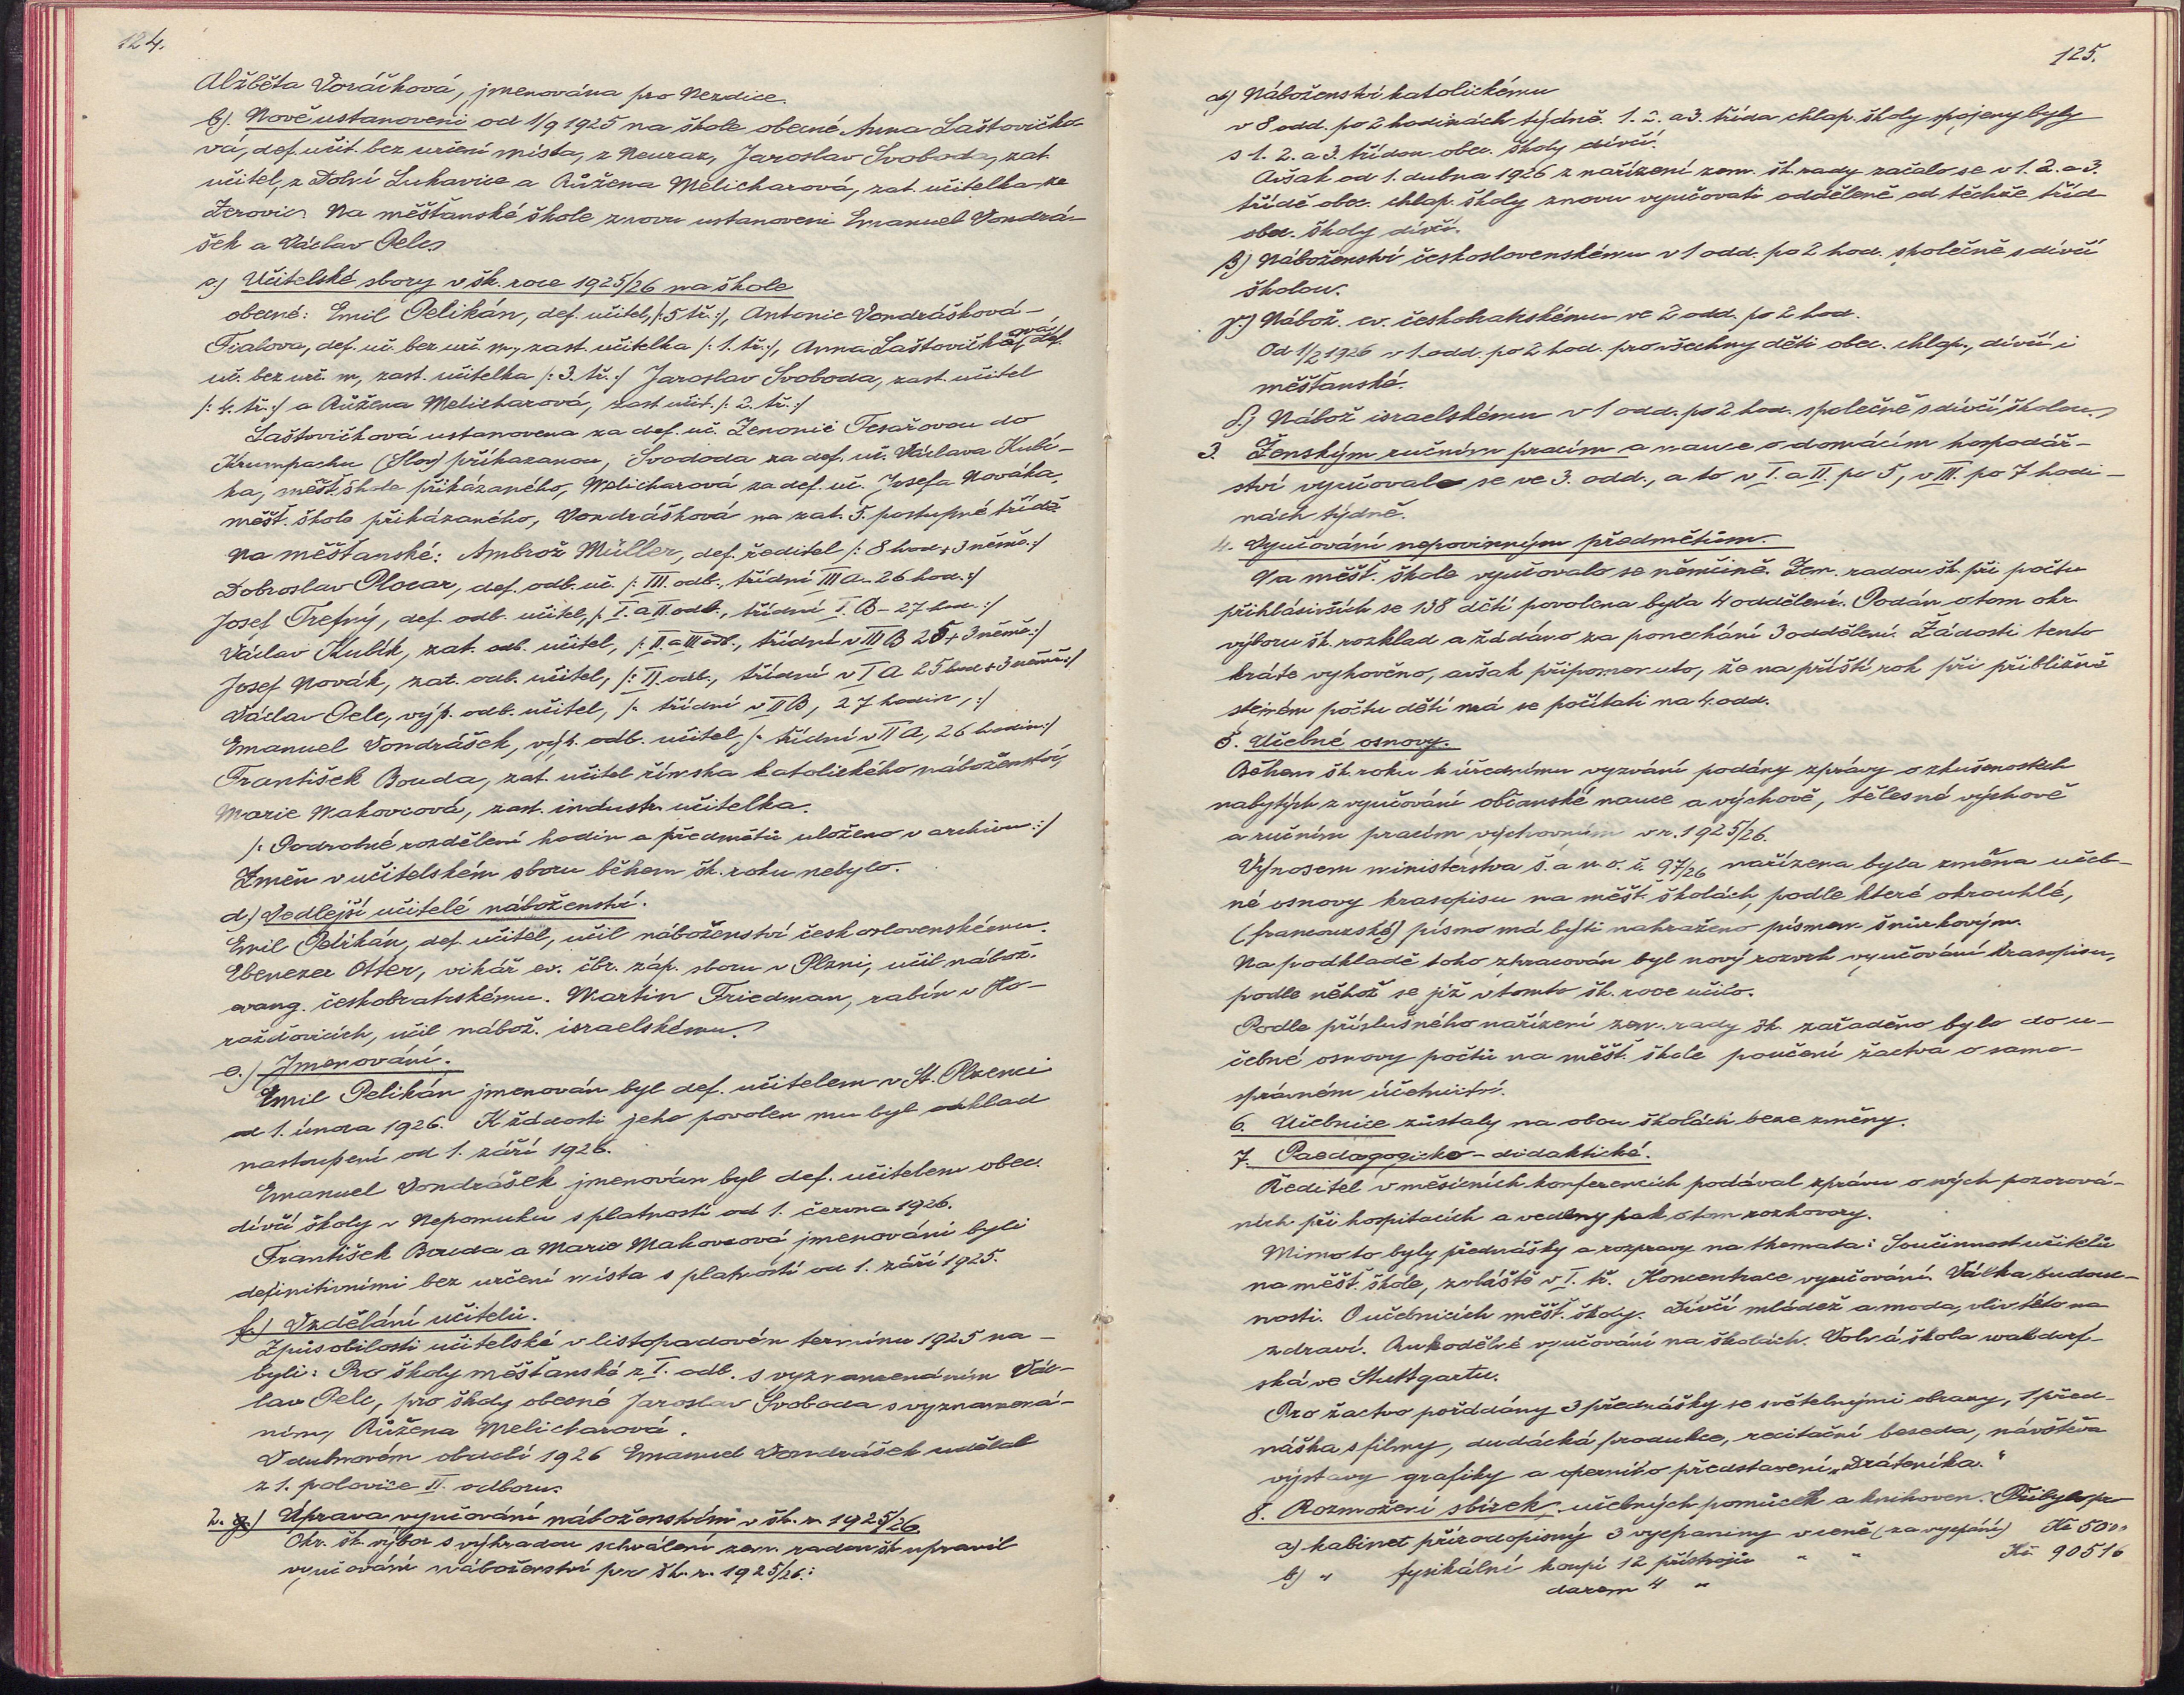 124.
Alžběta Voráčková, jmenována pro Nezdice.
b). Nově ustanoveni od 1/9 1925 na škole obecné Anna Laštovičko-
vá, def. učit. bez určení místa, z Neuraz, Jaroslav Svoboda, zat.
učitel, z Dolní Lukavice a Růžena Melicharová, zat. učitelka ze
Žerovic. Na měšťanské škole znovu ustanoveni Emanuel Vondrá-
šek a Václav Pelc.
c) Učitelské sbory v šk. roce 1925/26 na škole
obecné: Emil Pelikán, def. učitel, /:5 tř.:/, Antonie Vondrášková-
Fialova, def. uč. bez urč. m., zast. učitelka /: 1. tř.:/, Anna Laštovičková, def.
uč. bez urč. m., zast. učitelka /: 3. tř.:/ Jaroslav Svoboda, zast. učitel
/: 4. tř.:/ a Růžena Melicharová, zast. učit. /: 2. tř.:/
Laštovičková ustanovena za def. uč. Zenonii Tesařovou do
Krumpachu (Slov) přikazanou, Svododa za def. uč. Václava Kubí-
ka, měšt. škole přikázaného, Melicharová za def. uč. Josefa Nováka,
měšt. škole přikázaného, Vondrášková na zat. 5. postupné třídě.
Na měšťanské: Ambrož Müller, def. ředitel /: 8 hod + 3 němč.:/
Dobroslav Plocar, def. odb. uč. /: III. odb., třídní III A - 26 hod.:/
Josef Trefný, def. odb. učitel, /: I. a II odb., třídní I. B - 27 hod.:/
Václav Kubík, zat. odb. učitel, /: II. a III odb., třídní v III B 25 + 3 němč.:/
Josef Novák, zat. odb. učitel, /: II. odb., třídní v I A 25 hod + 3 němč.:/
Václav Pelc, výp. odb. učitel, /: třídní v II B, 27 hodin, :/
Emanuel Vondrášek, výp. odb. učitel, /: třídní v II A, 26 hodin:/
František Bouda, zat. učitel římska katolického náboženství,
Marie Makovcová, zast. industr. učitelka.
/: Podrobné rozdělení hodin a předmětů uloženo v archivu:/
Změn v učitelském sboru během šk. roku nebylo.
d.) Vedlejší učitelé náboženství.
Emil Pelikán, def. učitel, učil náboženství československému.
Ebenezer Otter, vikář ev. čbr. záp. sboru v Plzni, učil nábož.
evang. českobratrskému. Martin Friedman, rabín v Ho-
raždovicích, učil nábož. israelskému.
e.) Jmenování.
Emil Pelikán jmenován byl def. učitelem v St. Plzenci
od 1. února 1926. K žádosti jeho povolen mu byl odklad
nastoupení od 1. září 1926.
Emanuel Vondrášek jmenován byl def. učitelem obec.
dívčí školy v Nepomuku s platností od 1. června 1926.
František Bouda a Marie Makovcová jmenováni byli
definitivními bez určení místa s platností od 1. září 1925.
f.) Vzdělání učitelů.
Způsobilosti učitelské v listopadovén termínu 1925 na-
byli: Pro školy měšťanské z I. odb. s vyznamenáním Vác-
lav Pelc, pro školy obecné Jaroslav Svoboda s vyznamená-
ním, Růžena Melicharová.
V dubnovém období 1926 Emanuel Vondrášek udělal
z 1. polovice II. odboru.
2. g.) Úprava vyučování náboženstvím v šk. r. 1925/26
Okr. šk. výbor s výhradou schválení zem. radou šk. upravil
vyučování náboženství pro šk. r. 1925/26.:
125.
α) Náboženství katolickému
v 8 odd. po 2 hodinách týdně. 1. 2. a 3. třída chlap. školy spojeny byly
s 1. 2. a 3. třídou obec. školy dívčí.
Avšak od 1. dubna 1926 z nařízení zem. šk. rady začalo se v 1. 2. a 3.
třídě obec. chlap. školy znovu vyučovati odděleně od těchže tříd
obec. školy dívčí.
β) Náboženství československému v 1 odd. po 2 hod. společně s dívčí
školou.
γ.) Nábož. ev. českobratrskému ve 2 odd. po 2 hod.
Od 1/2 1926 v 1. odd. po 2 hod. pro všechny děti obec. chlap., dívčí i
měšťanské.
δ.) Nábož israelskému v 1 odd. po 2 hod. společně s dívčí školou.
3. Ženským ručním pracím a nauce o domácím hospodář-
ství vyučovalo se ve 3. odd., a to v I. a II. po 5, v III. po 7 hodi-
nách týdně.
4. Vyučování nepovinným předmětům.
Na měšť. škole vyučovalo se němčině. Zem. radou šk. při počtu
přihlásivších se 138 dětí povolena byla 4 oddělení. Podán o tom okr.
výboru šk. rozklad a žádáno za ponechání 3 oddělení. Žádosti tento
kráte vyhověno, avšak připomenuto, že na příští rok při přibližně
stejném počtu dětí má se počítati na 4. odd.
5. Učebné osnovy.
Během šk. roku k úřednímu vyzvání podány zprávy o zkušenostech
nabytých z vyučování občanské nauce a výchově, tělesné výchově
a ručním pracím výchovným v r. 1925/26.
Výnosem ministerstva š. a n. o. č. 97/26 nařízena byla změna učeb-
né osnovy krasopisu na měšť. školách, podle které okrouhlé,
(francouzské) písmo má býti nahraženo písmem šnůrkovým.
Na podkladě toho zpracován byl nový rozvrh vyučování krasopisu,
podle něhož se již v tomto šk. roce učilo.
Podle příslušného nařízení zem. rady šk. zařaděno bylo do u-
čebné osnovy počtů na měšť. škole poučení žactva o samo-
správném účetnictví.
6. Učebnice zůstaly na obou školách beze změny.
7. Paedagogicko-didaktické.
Ředitel v měsíčních konferencích podával zprávu o svých pozorová-
ních při hospitacích a vedeny pak o tom rozhovory.
Mimo to byly přednášky a rozpravy na themata: Součinnost učitelů
na měšť. škole, zvláště v I. tř. Koncentrace vyučování. Válka budouc-
nosti. O učebnicích měšť. školy. Dívčí mládež a moda, vliv této na
zdraví. Rukodělné vyučování na školách. Volná škola waldorf-
ská ve Stuttgartu.
Pro žactvo pořádány 3 přednášky se světelnými obrazy, 1 před-
náška s filmy, dudácká produkce, recitační beseda, návštěva
výstavy grafiky a operního představení „Dráteníka.“
8. Rozmožení sbírek, učebných pomůcek a knihoven. Přibylo pro
a) kabinet přírodopisný 3 vycpaniny v ceně (za vycpání) Kč 50.--
b) " fysikální koupí 12 přístrojů " " Kč 905 16
darem 4 "